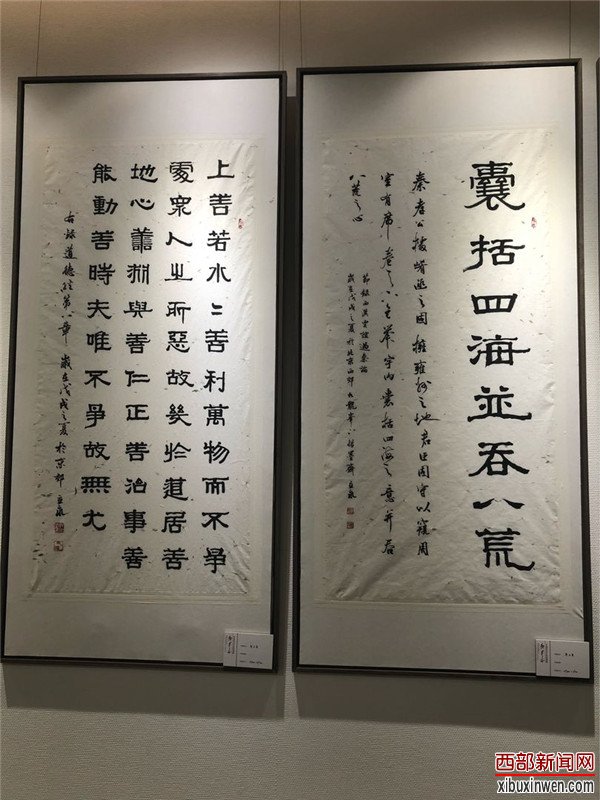 囊括四海並吞八荒
秦孝公據崤函之固擁雍州之地君臣固守以窺周
室有席卷天下包舉宇內囊括四海之意并吞
八荒之心
節録西漢賈誼過秦論
歲在戊戌之夏於北京
上善若水〻善利萬物而不爭
處衆人之所惡故幾於道居善
地心譱淵與善仁正善治事善
能動善時夫唯不爭故無尤
右録道德經第八章歲在戊戌之夏於京郊
西部新闻网
xibuxinwen.com